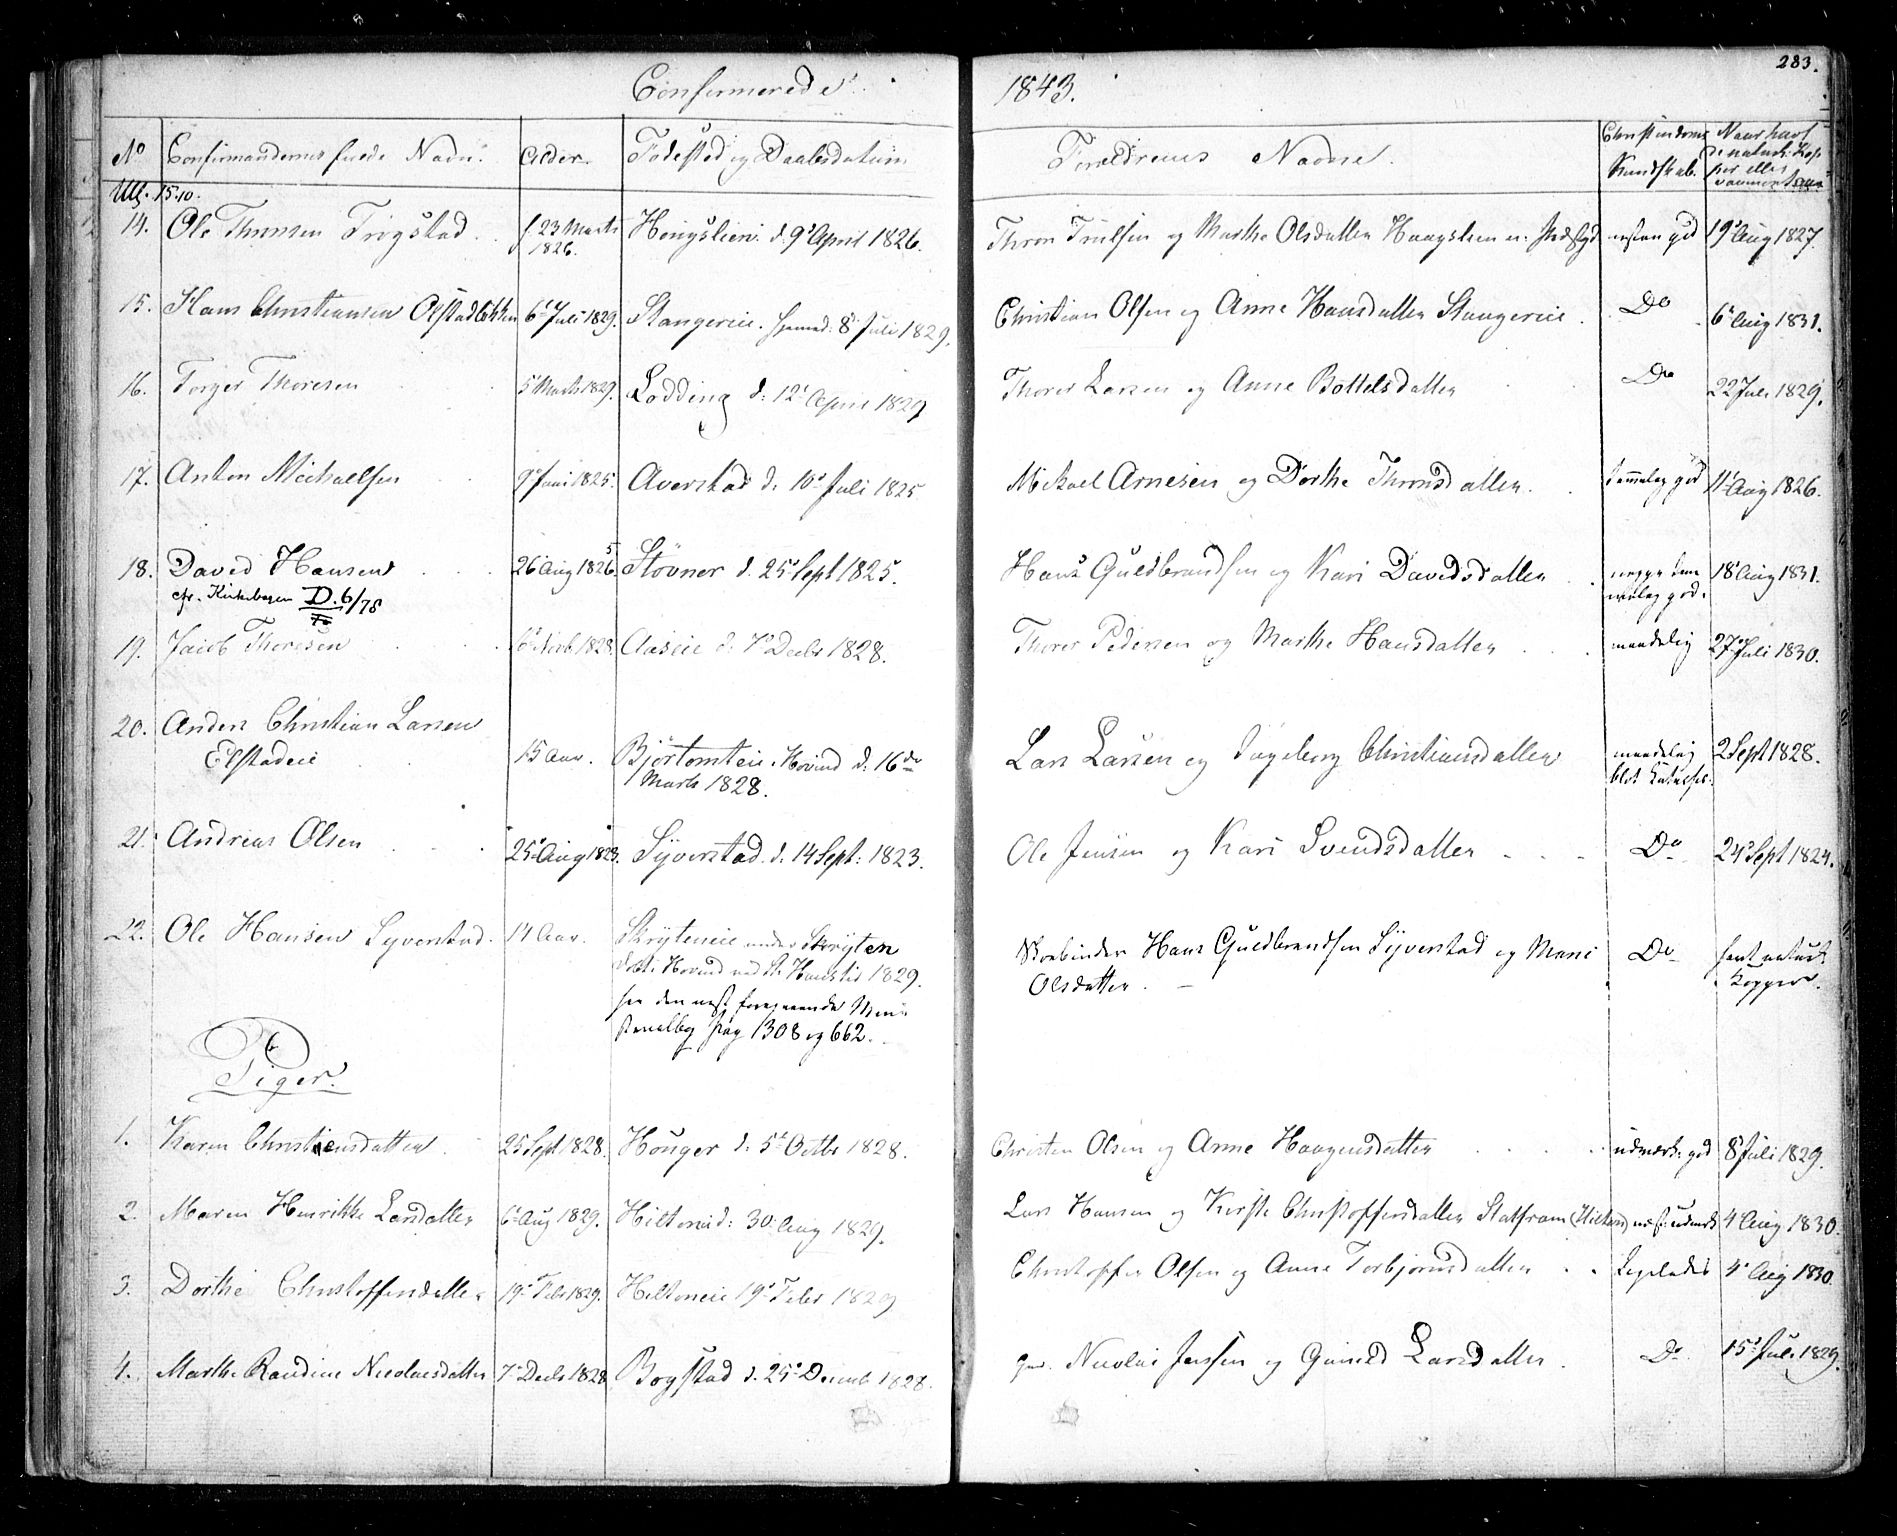 Confirmerede
1843.
283.
No Confirmandernes fulde Navn. Alder. Fødested og Daabsdatum Forældrenes Navne. Christendoms Kundskab. Naar havt de naturl. Kop
per eller vaccineret
Ull. 15.10.
14. Ole Thronsen Trøgstad f. 23 Marts 1826. d. 9 April 1826. Thron Truelsen og Marthe Olsdatter næsten god 19 Aug 1827.
15. Hans Christiansen Olstadløkken 6 Juli 1829. Stangereie. hjemmed: 8 Juli 1829. Christian Olsen og Anne Hansdatter Stangereie. Do 6 Aug 1831.
16. Torger Thoresen 5 Marts 1829. Lodding d: 12 April 1829 Thorer Larsen og Anne Bottelsdatter Do 22 Juli 1829.
17. Anton Michaelsen 9 Juni 1825. Averstad d. 10 Juli 1825 Mikael Arnesen og Dorthe Thronsdatter. temmelig god 11 Aug 1826.
18. David Hansen 26 Aug 1826 5 Støvner d. 25 Sept 1825. Hans Guldbrandsen og Kari Davidsdatter neppe tem
melig god. 18 Aug 1831.
cfr. Kirkebogen D. 6/78
19. Jacob Thoresen 6 Novb 1828. Aaseie d. 7 Decbr 1828. Thorer Pedersen og Marthe Hansdatter maadelig 27 Juli 1830.
20. Anders Christian Larsen
Elstadeie 15 Aar. Bjørtomteie. Hovind d. 16de
Marts 1828. Lars Larsen og Ingeborg Christiansdatter maadelig
blot Katechis. 2 Sept 1828.
21. Andreas Olsen 25 Aug 1823. Syverstad. d. 14 Sept: 1823. Ole Jensen og Kari Svendsdatter Do 24 Sept 1824.
22. Ole Hansen Syverstad. 14 Aar. Skryteneie under Skryten
døbt i Hovind ved St. Hanstid 1829.
see den næst foregaaende Mini
sterialbog pag 1308 og 662. Hans Guldbrandsen Syverstad og Marie
Olsdatter. Do havt naturl.
Kopper.
Piger.
1. Karen Christiensdatter 25 Sept 1828. Honger d. 5 Octbr 1828. Christen Olsen og Anne Haagensdatter udmærk: god 8 Juli 1829.
2. Maren Henrikke Larsdatter 6 Aug 1829. Hiltonud: 30 Aug 1829. Lars Hansen og Kirste Christoffersdatter (Hilton) næst: udmærk 4 Aug 1830.
3. Dorthe Christoffersdatter 19 Febr 1829. Hiltoneie 19 Febr 1829 Christopher Olsen og Anne Torbjørnsdatter Ligeledes 4 Aug 1830.
4. Marthe Randine Nicolaisdatter 7 Decbr 1828 Bogstad d. 25 Decemb 1828. Nicolai Jensen og Gunild Larsdatter. Do 15 Juli 1829.